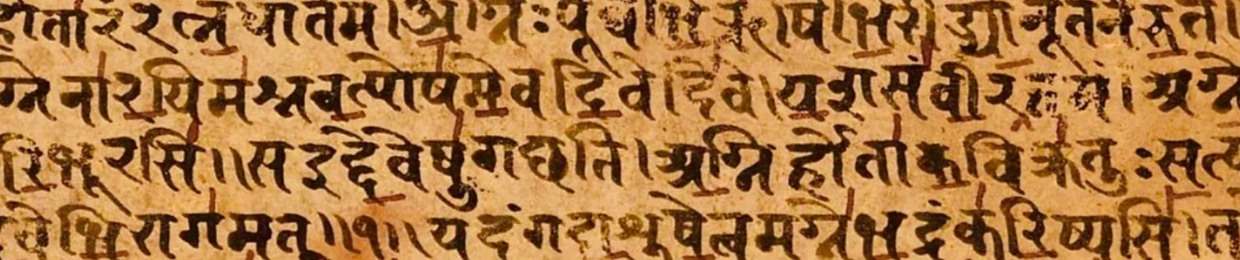 होतारंरत्नधातमं।अग्निःपूर्वेभिर्ऋषिभिरीड्योनूतनैरुत।
ग्नेनारयिमश्नवत्पोषमेवदिवेदिवे।यशसंवीरवत्तमं।अग्ने
रिभूरसि॥सइद्देवेषुगछति।अग्निर्होताकविक्रतुःसत्य
वेभिरागमत्॥१॥यदंगदाशुषेत्वमग्नेभद्रंकरिष्यसि।त